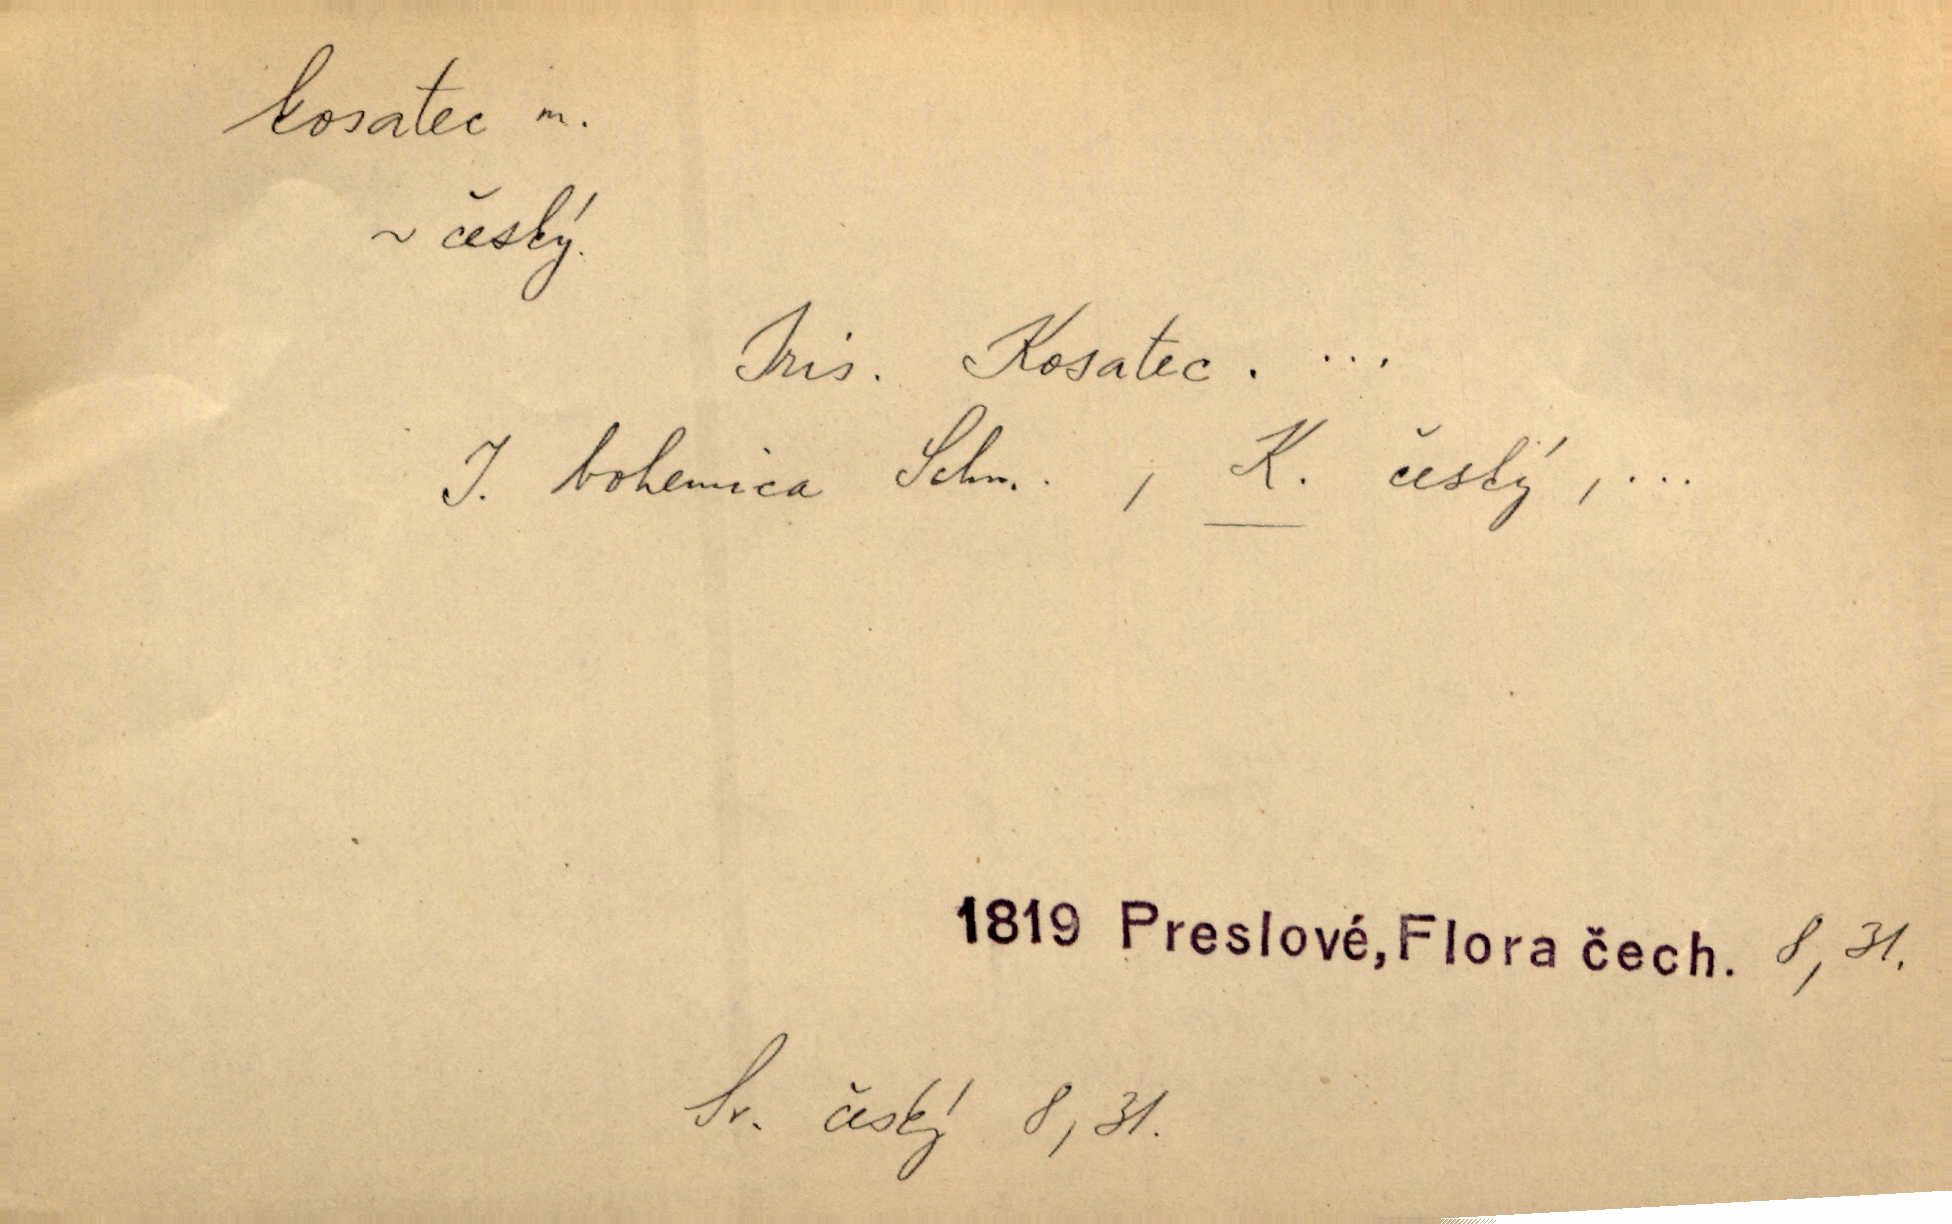 kosatec m.
~ český.
Iris. Kosatec. ...
I. bohemica Schm. , K. český, ...
1819 Preslové, Flora čech. 8, 31.
Sr. český 8, 31.